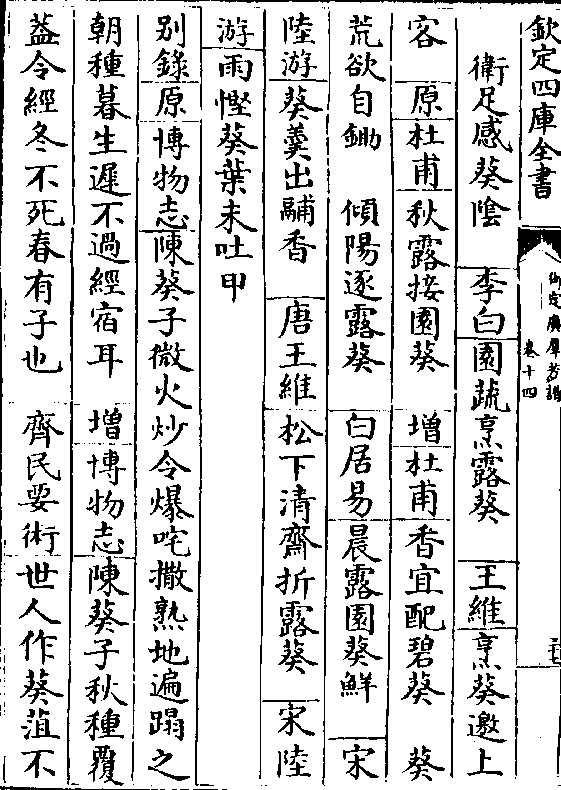 欽定四庫全書
御定廣羣芳譜
卷十四
二十七
衛足感葵陰　李白園蔬烹露葵　王維烹葵邀上
客　原杜甫秋露接園葵　增杜甫香宜配碧葵　葵
荒欲自鋤　傾陽逐露葵　白居易晨露園葵鮮　宋
陸游葵羹出鬴香　唐王維松下清齋折露葵　宋陸
游雨慳葵葉未吐甲
别錄原博物志陳葵子微火炒令爆咤撒熟地遍蹋之
朝種暮生遲不過經宿耳　增博物志陳葵子秋種覆
葢令經冬不死春有子也　齊民要術世人作葵菹不